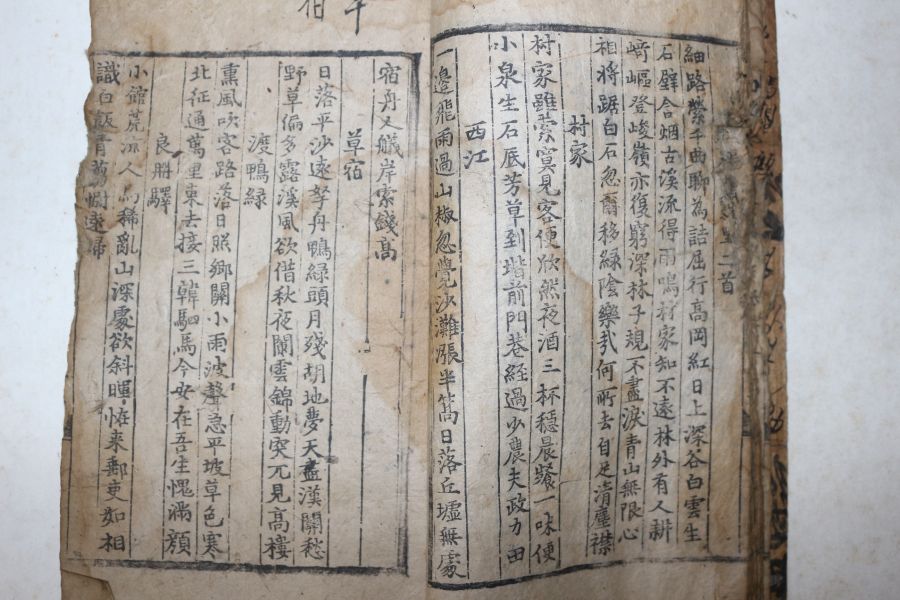 二首
細路縈千曲聊為詰屈行高岡紅日上深谷白雲生
石壁含烟古溪流得雨鳴村家知不遠林外有人耕
﨑嶇登峻嶺亦復窮深林子規不盡淚青山無限心
相將踞白石忽爾移綠陰樂哉何所去自足清塵襟
村家
村家雖索寞見客便欣然夜酒三杯穩晨飱一味便
小泉生石底芳草到堦前門巷經過少農夫政力田
西江
一邊龍雨過山椒忽覺沙灘漲半篙日落丘墟無處
宿舟人艤岸索錢高
草宿
日落平沙遠孥舟鴨綠頭月殘胡地夢天盡漢關愁
野草偏多露溪風欲借秋夜闌雲錦動突兀見高樓
渡鴨綠
熏風吹客路落日照鄉關小雨波聲急平坡草色寒
北征通萬里東去接三韓駟馬今安在吾生愧滿顔
良冊驛
小館荒凉人馬稀亂山深處欲斜暉恠来郵吏如相
識白飯青蒭遠歸